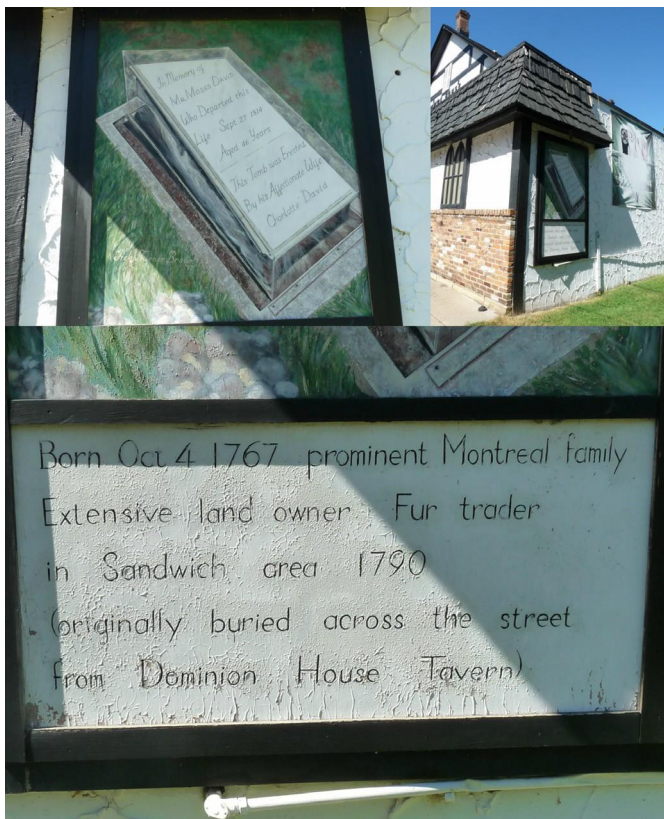 In Memory of
Mr. Moses David
Who Departed this
Life Sept 27 1814
Aged 46 Years
This Tomb was Erected
By his Affectionate Wife
Charlotte David
Born Oct 4 1767 prominent Montreal family
Extensive land owner Fur trader
in Sandwich area 1790
(originally buried across the street
from Dominion House Tavern)